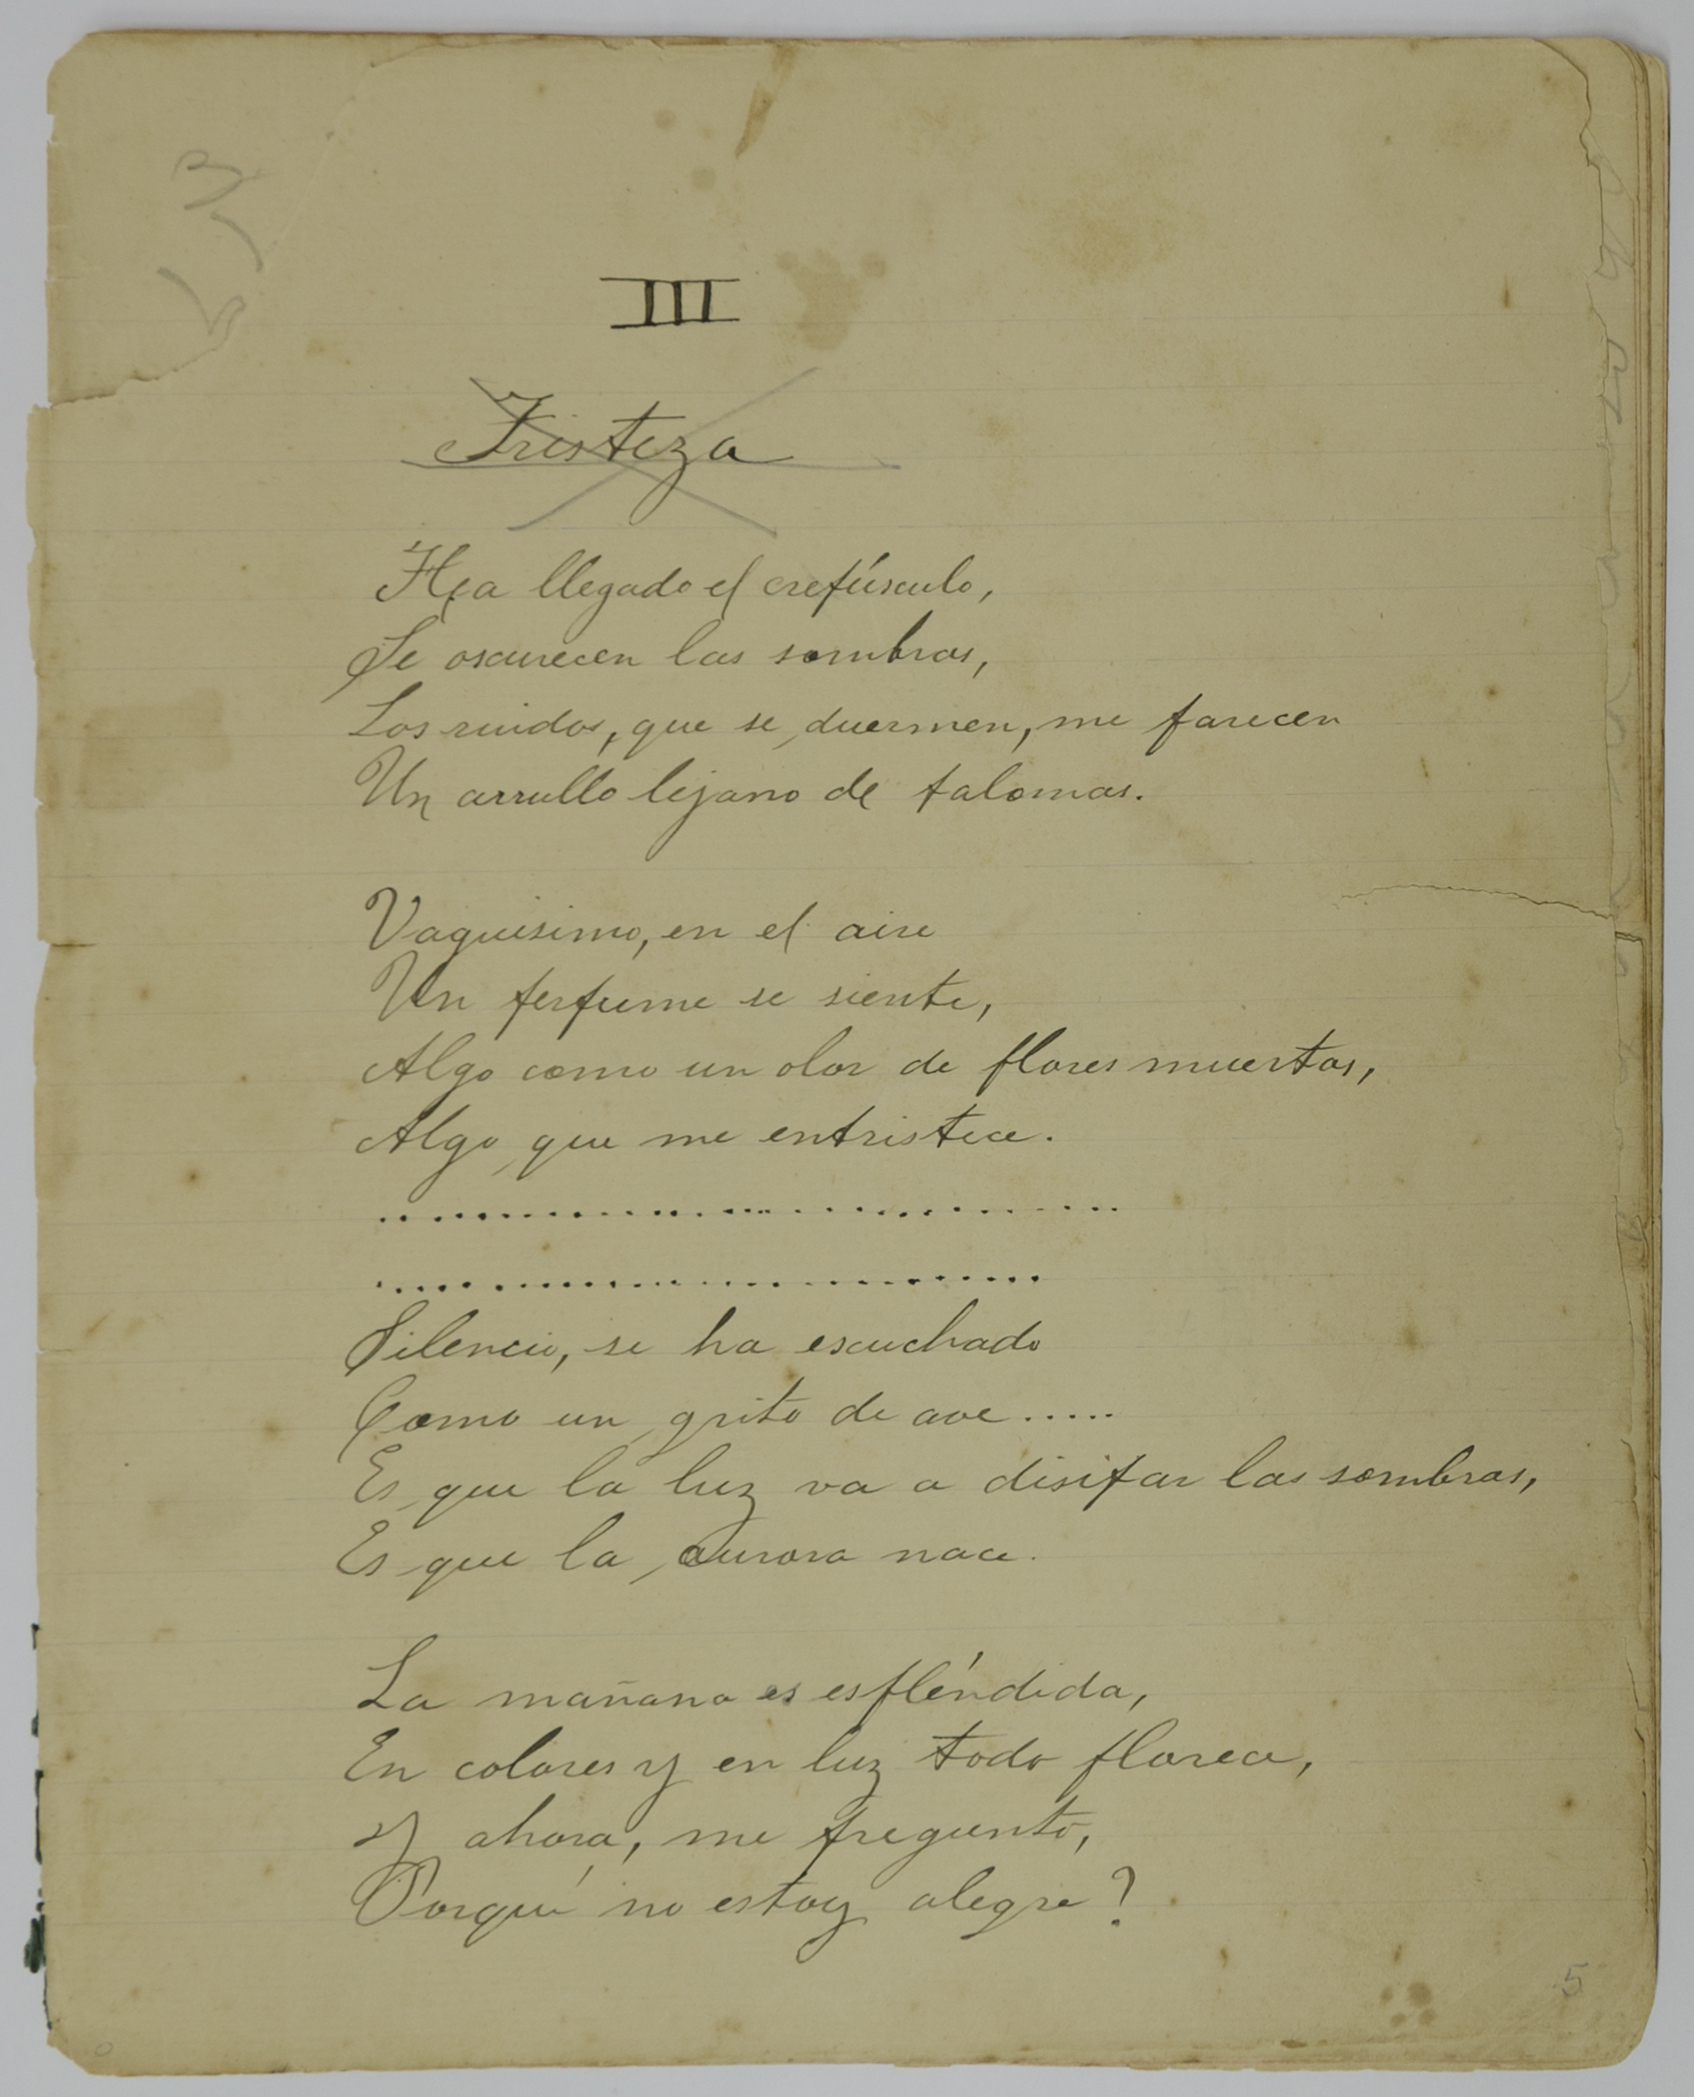 III
Tristeza
Ha llegado el crepúsculo,
Se oscurecen las sombras,
Los ruidos, que se duermen, me parecen
Un arrullo lejano de palomas.
Vaguisimo, en el aire
Un perfume se siente,
Algo como un olor de flores muertas,
Algo que me entristece.
.............................
.............................
Silencio, se ha escuchado
Como un grito de ave.....
Es que la luz va a disipar las sombras,
Es que la aurora nace.
La mañana es espléndida,
En colores y en luz todo florece,
Y ahora, me pregunto,
Porqué no estoy alegre?
5